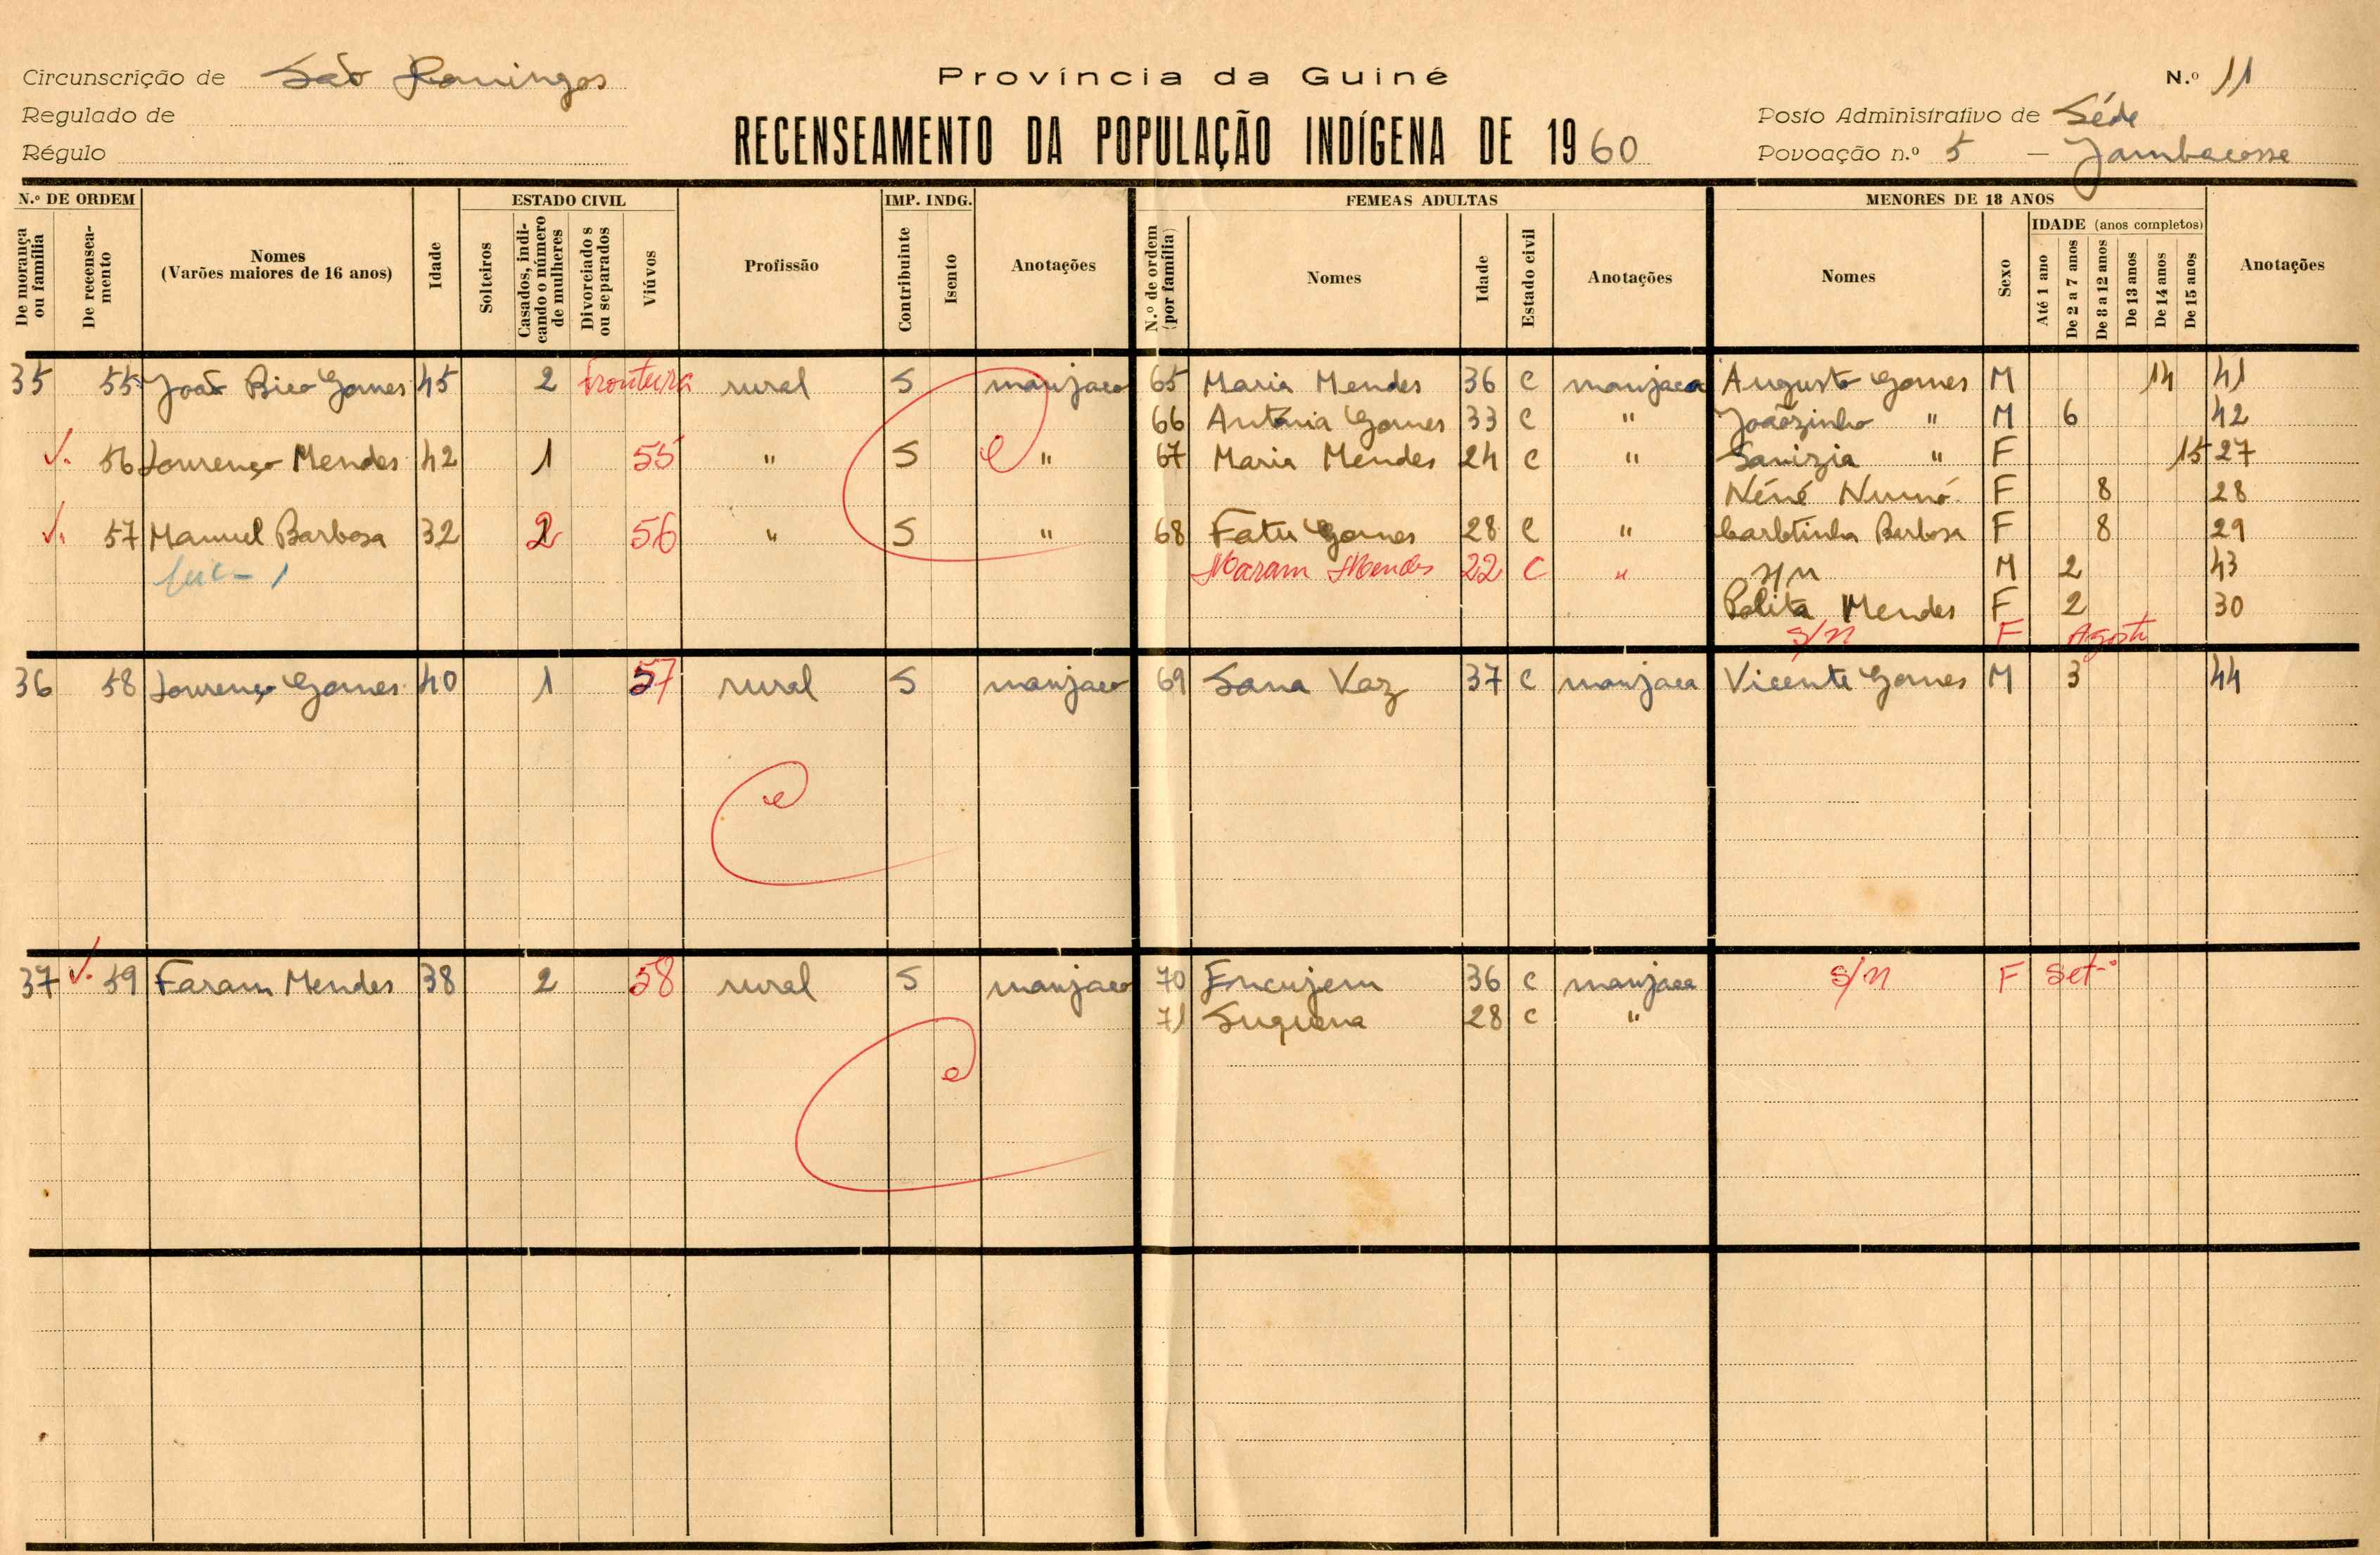 Província da Guiné
Circunscrição de São Domingos
N.º 11
Regulado de
RECENSEAMENTO DA POPULAÇÃO INDÍGENA DE 1960
Posto Administrativo de Séde
Régulo
Povoação n.º 5 — Jambacosse
N.º DE ORDEM ESTADO CIVIL IMP. INDG. FEMEAS ADULTAS MENORES DE 18 ANOS
De morança ou família De recenseamento Nomes (Varões maiores de 16 anos) Idade Solteiros Casados, indicando o número de mulheres Divorciados ou separados Viúvos Profissão Contribuinte Isento Anotações N.º de ordem (por família) Nomes Idade Estado civil Anotações Nomes Sexo IDADE (anos completos) Até 1 ano De 2 a 7 anos De 8 a 12 anos De 13 anos De 14 anos De 15 anos Anotações
35 55 João Bico Gomes 45 2 fronteira rural S manjaco 65 Maria Mendes 36 C manjaca Augusto Gomes M 14 41
66 Antónia Gomes 33 C " Joãozinho " M 6 42
56 Lourenço Mendes 42 1 55 " S " 67 Maria Mendes 24 C " Sanizia " F 15 27
Néné F 8 28
57 Manuel Barbosa 32 2 56 " S " 68 Fatu Gomes 28 C " Carlotinha Barbosa F 8 29
Maram Mendes 22 C " s/n M 2 43
Polita Mendes F 2 30
s/n F Agosto
36 58 Lourenço Gomes 40 1 57 rural S manjaco 69 Sana Vaz 37 C manjaca Vicente Gomes M 3 44
37 59 Faram Mendes 38 2 58 rural S manjaco 70 Encujem 36 C manjaca s/n F Set.º
71 Suquena 28 C "